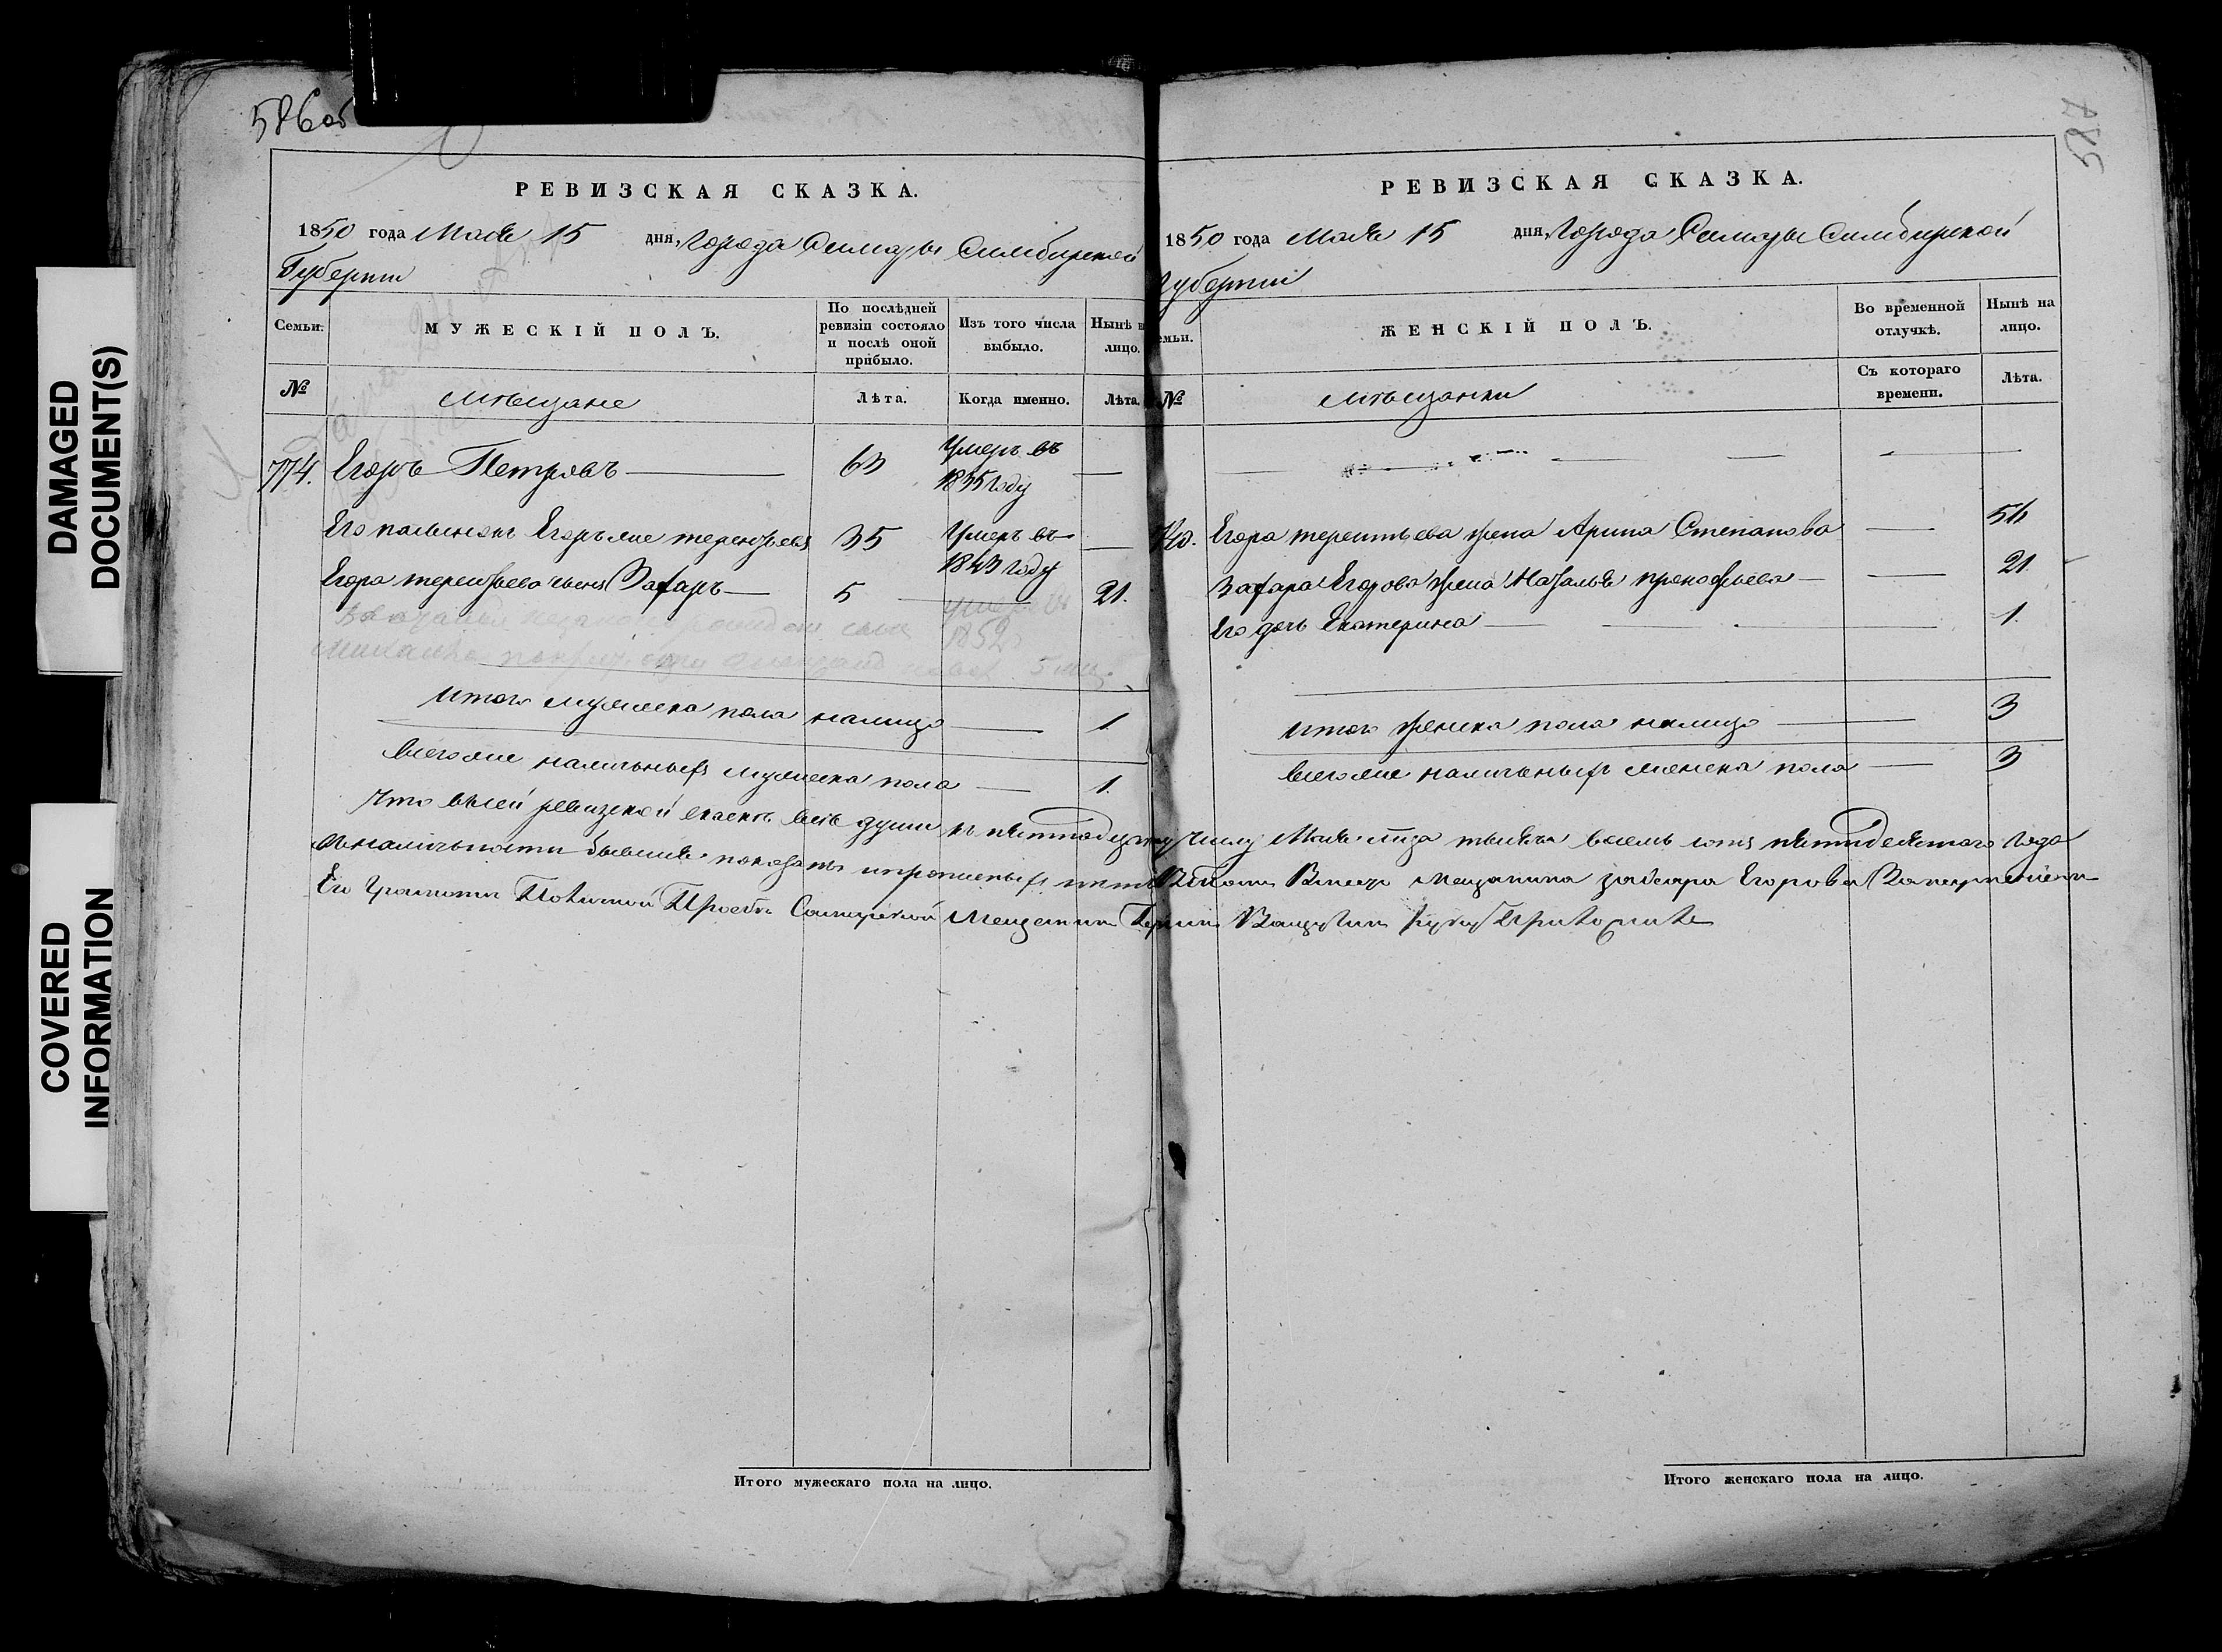 DAMAGED
DOCUMENT(S)
COVERED
INFORMATION
586об
РЕВИЗСКАЯ СКАЗКА.
1850 года Мая 15 дня, города Самары Симбирской
Губернии
Семьи.
МУЖЕСКІЙ ПОЛЪ.
По послѣдней ревизіи состояло и послѣ оной прибыло.
Изъ того числа выбыло.
Нынѣ н лицо.
№
мѣщане
Лѣта.
Когда именно.
Лѣта.
774. Егоръ Петровъ 63 Умеръ въ 1835 году
Его Егоръ же терентьевъ 35 Умеръ въ 1843 году
Егора терентьева сынъ Захаръ 5 21.
умеръ
1852
5 мщ
Итого мужеска пола налицо 1.
Всего же наличныхъ мужеска пола 1.
587
РЕВИЗСКАЯ СКАЗКА.
1850 года Мая 15 дня, города Самары Симбирской
губернии
емьи.
ЖЕНСКІЙ ПОЛЪ.
Во временной отлучкѣ.
Нынѣ на лицо.
№
мѣщанки
Съ котораго времени.
Лѣта.
Егора терентьева жена Арина Степанова 54
Захара Егорова жена Наталья прокофьева 21.
Его дочь Екатерина 1.
Итого женска пола налицо 3
Всего же наличныхъ женска пола 3
Что въ сей ревизской сказкѣ всѣ души къ пятнадцатому числу Мая мца тысяча восемь сотъ пятидесятаго года
въ наличности бывшія показаны и прописныхъ нѣтъ мещанина Егорова
Его Прозьбѣ Самарской Мещанин руку Приложилъ
Итого мужескаго пола на лицо.
Итого женскаго пола на лицо.